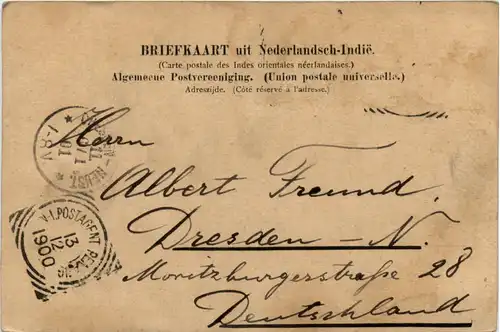 BRIEFKAART uit Nederlandsch-Indië.
(Carte postale des Indes orientales néerlandaises.)
Algemeene Postvereeniging. (Union postale universelle.)
Adreszijde. (Côté réservé à l'adresse.)
Herrn
Albert Freund.
Dresden – N.
Moritzburgerstraße 28
Deutschland
7-8V
N-I.POSTAGENT
13
12
1900